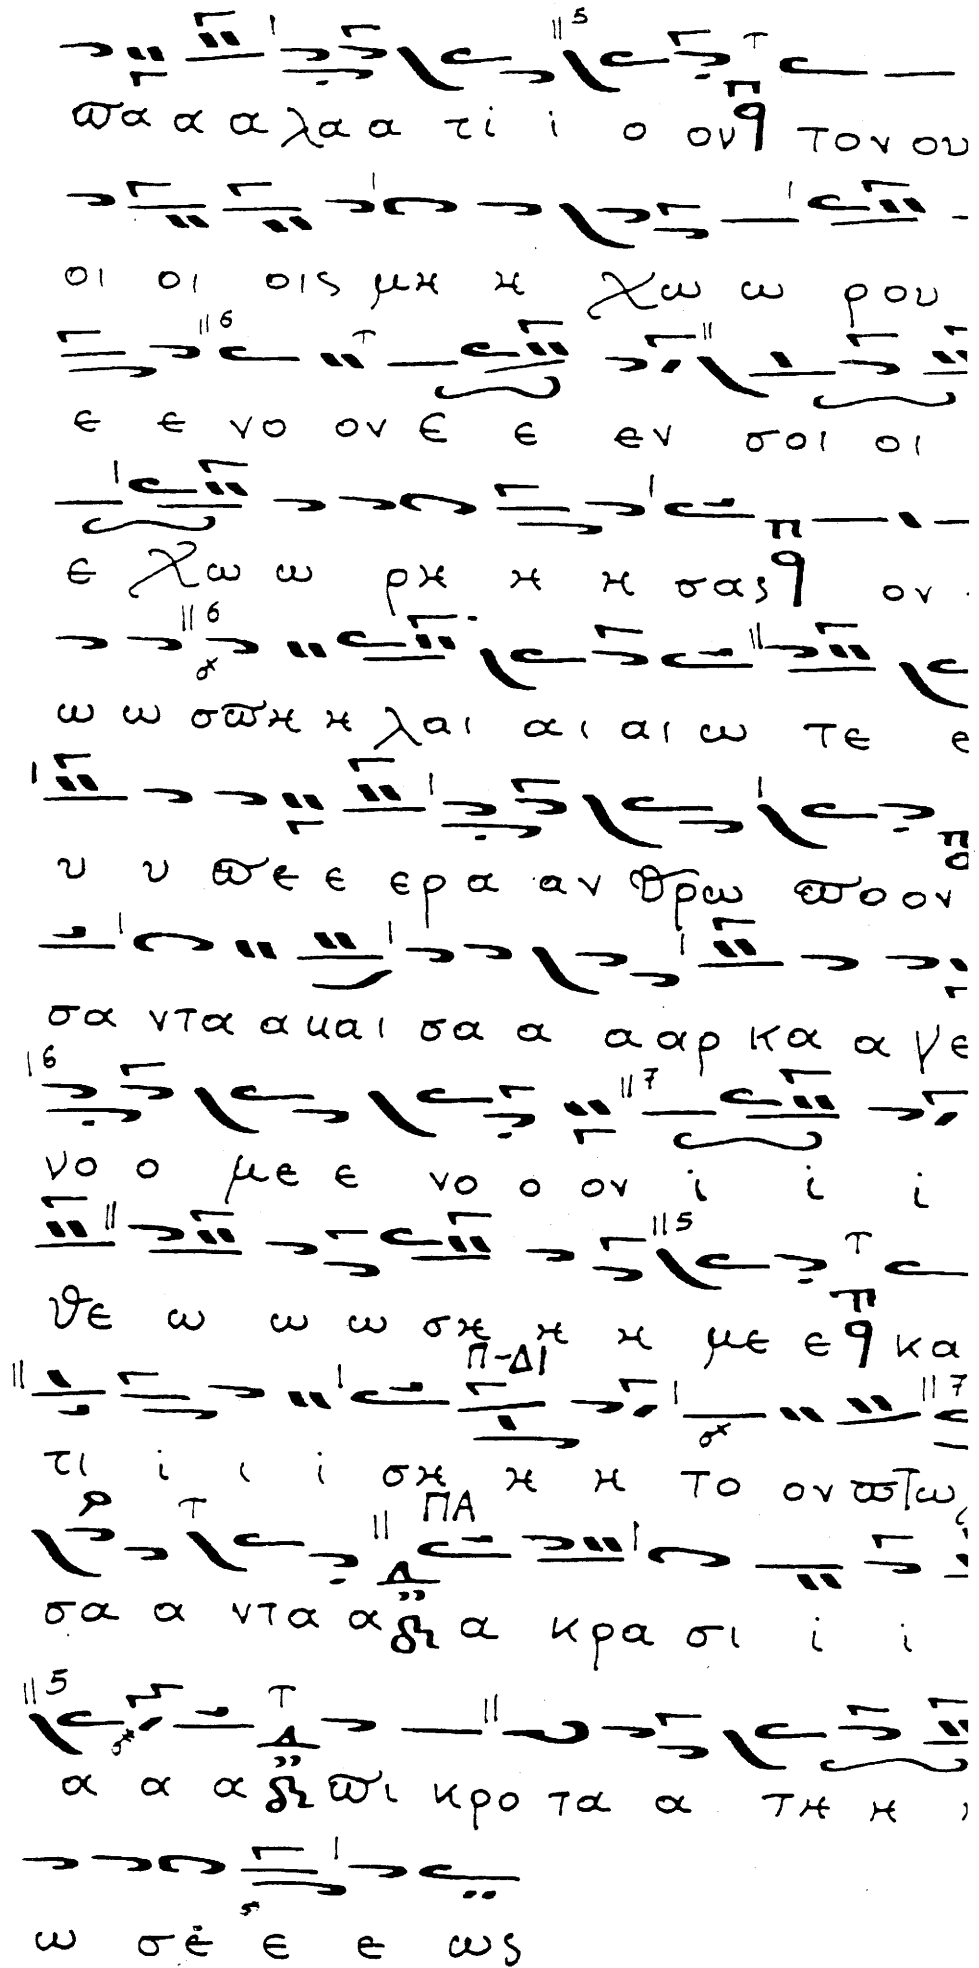 παα α αλαα α τί ί ί ο ονq τονου
οι οι οις μη η χω ω ρου
ε ε νο ον Ε ε εν σοι οι
ε χω ω ρη η η σαςq ον
ω ω σπη η λαι αι αι ω τε ε
υ υ πε ε ε ερα αν θρω ποον
σα ντα α και σα α α αρ κα α γε
νο ο με ε νο ο ον ί ί ί
θε ω ω ω ση η η με εq κα
Π-ΔΙ
τι ί ι ί ση η η το ον πτω
ΠΑ
σα α ντα α α κρα σι ί ί
α α α πι κρο τα α τη η
ω σε ε ε ως